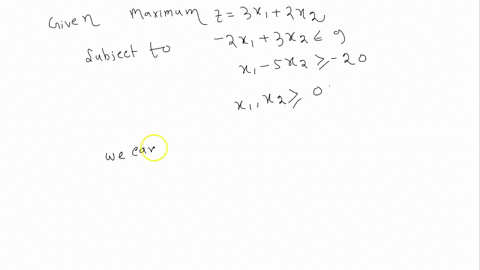 Given Maximum z = 3x₁ + 2x₂
Subject to -2x₁ + 3x₂ ≤ 9
x₁ - 5x₂ ≥ -20
x₁, x₂ ≥ 0
we can